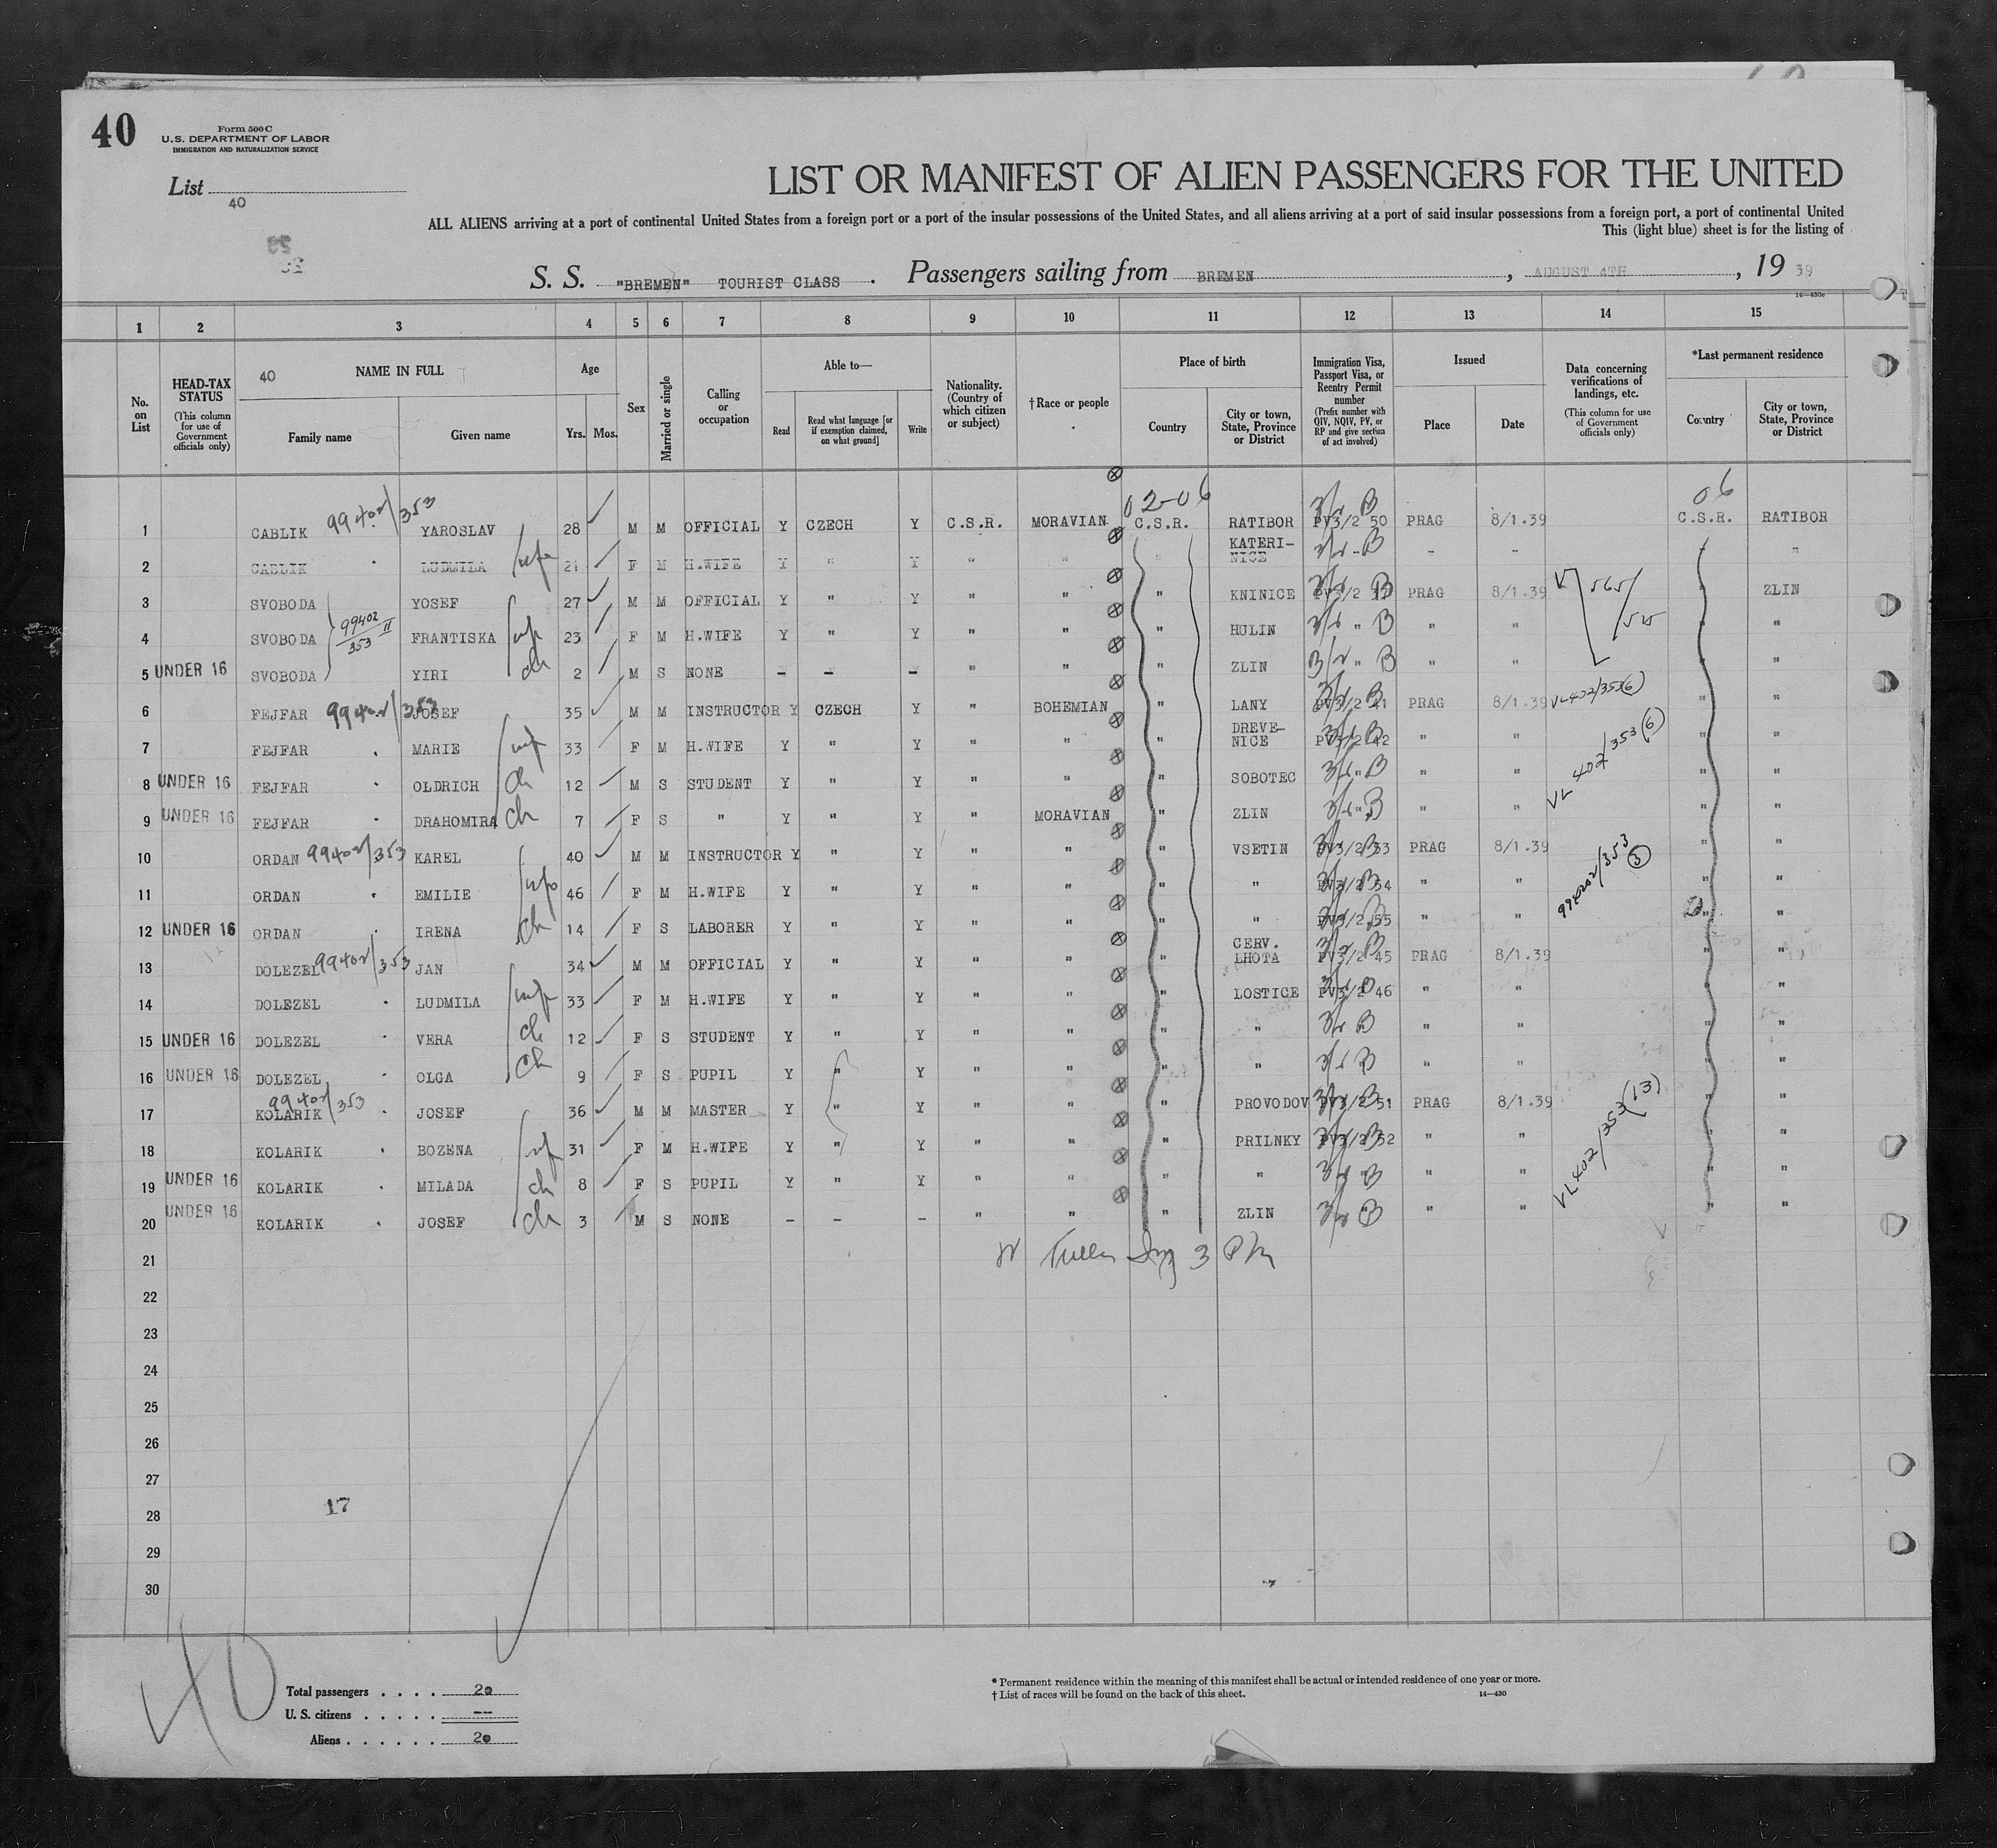 40
Form 500 C
U.S. DEPARTMENT OF LABOR
IMMIGRATION AND NATURALIZATION SERVICE
List
40
LIST OR MANIFEST OF ALIEN PASSENGERS FOR THE UNITED
ALL ALIENS arriving at a port of continental United States from a foreign port or a port of the insular possessions of the United States, and all aliens arriving at a port of said insular possessions from a foreign port, a port of continental United
This (light blue) sheet is for the listing of
S. S. "BREMEN" TOURIST CLASS . Passengers sailing from BREMEN , AUGUST 4TH , 19 39
14—430c
1 2 3 4 5 6 7 8 9 10 11 12 13 14 15
No. on List
HEAD-TAX STATUS (This column for use of Government officials only)
40 NAME IN FULL
Family name Given name
Age Yrs. Mos.
Sex
Married or single
Calling or occupation
Able to—
Read Read what language [or if exemption claimed, on what ground] Write
Nationality. (Country of which citizen or subject)
†Race or people
Place of birth
Country City or town, State, Province or District
Immigration Visa, Passport Visa, or Reentry Permit number (Prefix number with QIV, NQIV, PV, or RP and give section of act involved)
Issued
Place Date
Data concerning verifications of landings, etc. (This column for use of Government officials only)
*Last permanent residence
Country City or town, State, Province or District
02-06 06
1 CABLIK 99402/353 YAROSLAV 28 M M OFFICIAL Y CZECH Y C.S.R. MORAVIAN C.S.R. RATIBOR PV3/2 50 PRAG 8/1.39 C.S.R. RATIBOR
2 CABLIK LUDMILA wf 21 F M H.WIFE Y " Y " " KATERI-NICE 3/2 " B " " "
3 SVOBODA YOSEF 27 M M OFFICIAL Y " Y " " " KNINICE PV3/2 B PRAG 8/1.39 565/515 ZLIN
4 SVOBODA 99402/353 II FRANTISKA wf 23 F M H.WIFE Y " Y " " " HULIN 3/2 " B " " "
5 UNDER 16 SVOBODA YIRI ch 2 M S NONE - - - " " " ZLIN 3/2 " B " " "
6 FEJFAR 99402/353 JOSEF 35 M M INSTRUCTOR Y CZECH Y " BOHEMIAN " LANY PV3/2 41 PRAG 8/1.39 VL402/353(6) " "
7 FEJFAR MARIE wf 33 F M H.WIFE Y " Y " " DREVE-NICE PV3/2 42 " " VL 402/353(6) " "
8 UNDER 16 FEJFAR OLDRICH ch 12 M S STUDENT Y " Y " " " SOBOTEC 3/2 " B " " " "
9 UNDER 16 FEJFAR DRAHOMIRA ch 7 F S " Y " Y " MORAVIAN " ZLIN 3/2 " B " " " "
10 ORDAN 99402/353 KAREL 40 M M INSTRUCTOR Y " Y " " " VSETIN PV3/2 53 PRAG 8/1.39 99402/353 (3) " "
11 ORDAN EMILIE wf 46 F M H.WIFE Y " Y " " " " PV3/2 54 " " " "
12 UNDER 16 ORDAN IRENA ch 14 F S LABORER Y " Y " " " " PV3/2 55 " " " "
13 DOLEZEL 99402/353 JAN 34 M M OFFICIAL Y " Y " " " CERV. LHOTA PV3/2 45 PRAG 8/1.39 " "
14 DOLEZEL LUDMILA wf 33 F M H.WIFE Y " Y " " " LOSTICE PV3/2 46 " " " "
15 UNDER 16 DOLEZEL VERA ch 12 F S STUDENT Y " Y " " " " 3/2 B " " " "
16 UNDER 16 DOLEZEL OLGA ch 9 F S PUPIL Y " Y " " " " 3/2 B " " " "
17 KOLARIK 99402/353 JOSEF 36 M M MASTER Y " Y " " " PROVODOV PV3/2 51 PRAG 8/1.39 VL402/353(13) " "
18 KOLARIK BOZENA wf 31 F M H.WIFE Y " Y " " " PRILNKY PV3/2 52 " " " "
19 UNDER 16 KOLARIK MILADA ch 8 F S PUPIL Y " Y " " " " 3/2 " B " " " "
20 UNDER 16 KOLARIK JOSEF ch 3 M S NONE - - - " " " ZLIN 3/2 " B " " " "
21
22
23
24
25
26
27
28
29
30
17
40
Total passengers . . . . 20
U. S. citizens . . . . . --
Aliens . . . . . . 20
* Permanent residence within the meaning of this manifest shall be actual or intended residence of one year or more.
† List of races will be found on the back of this sheet.
14—430